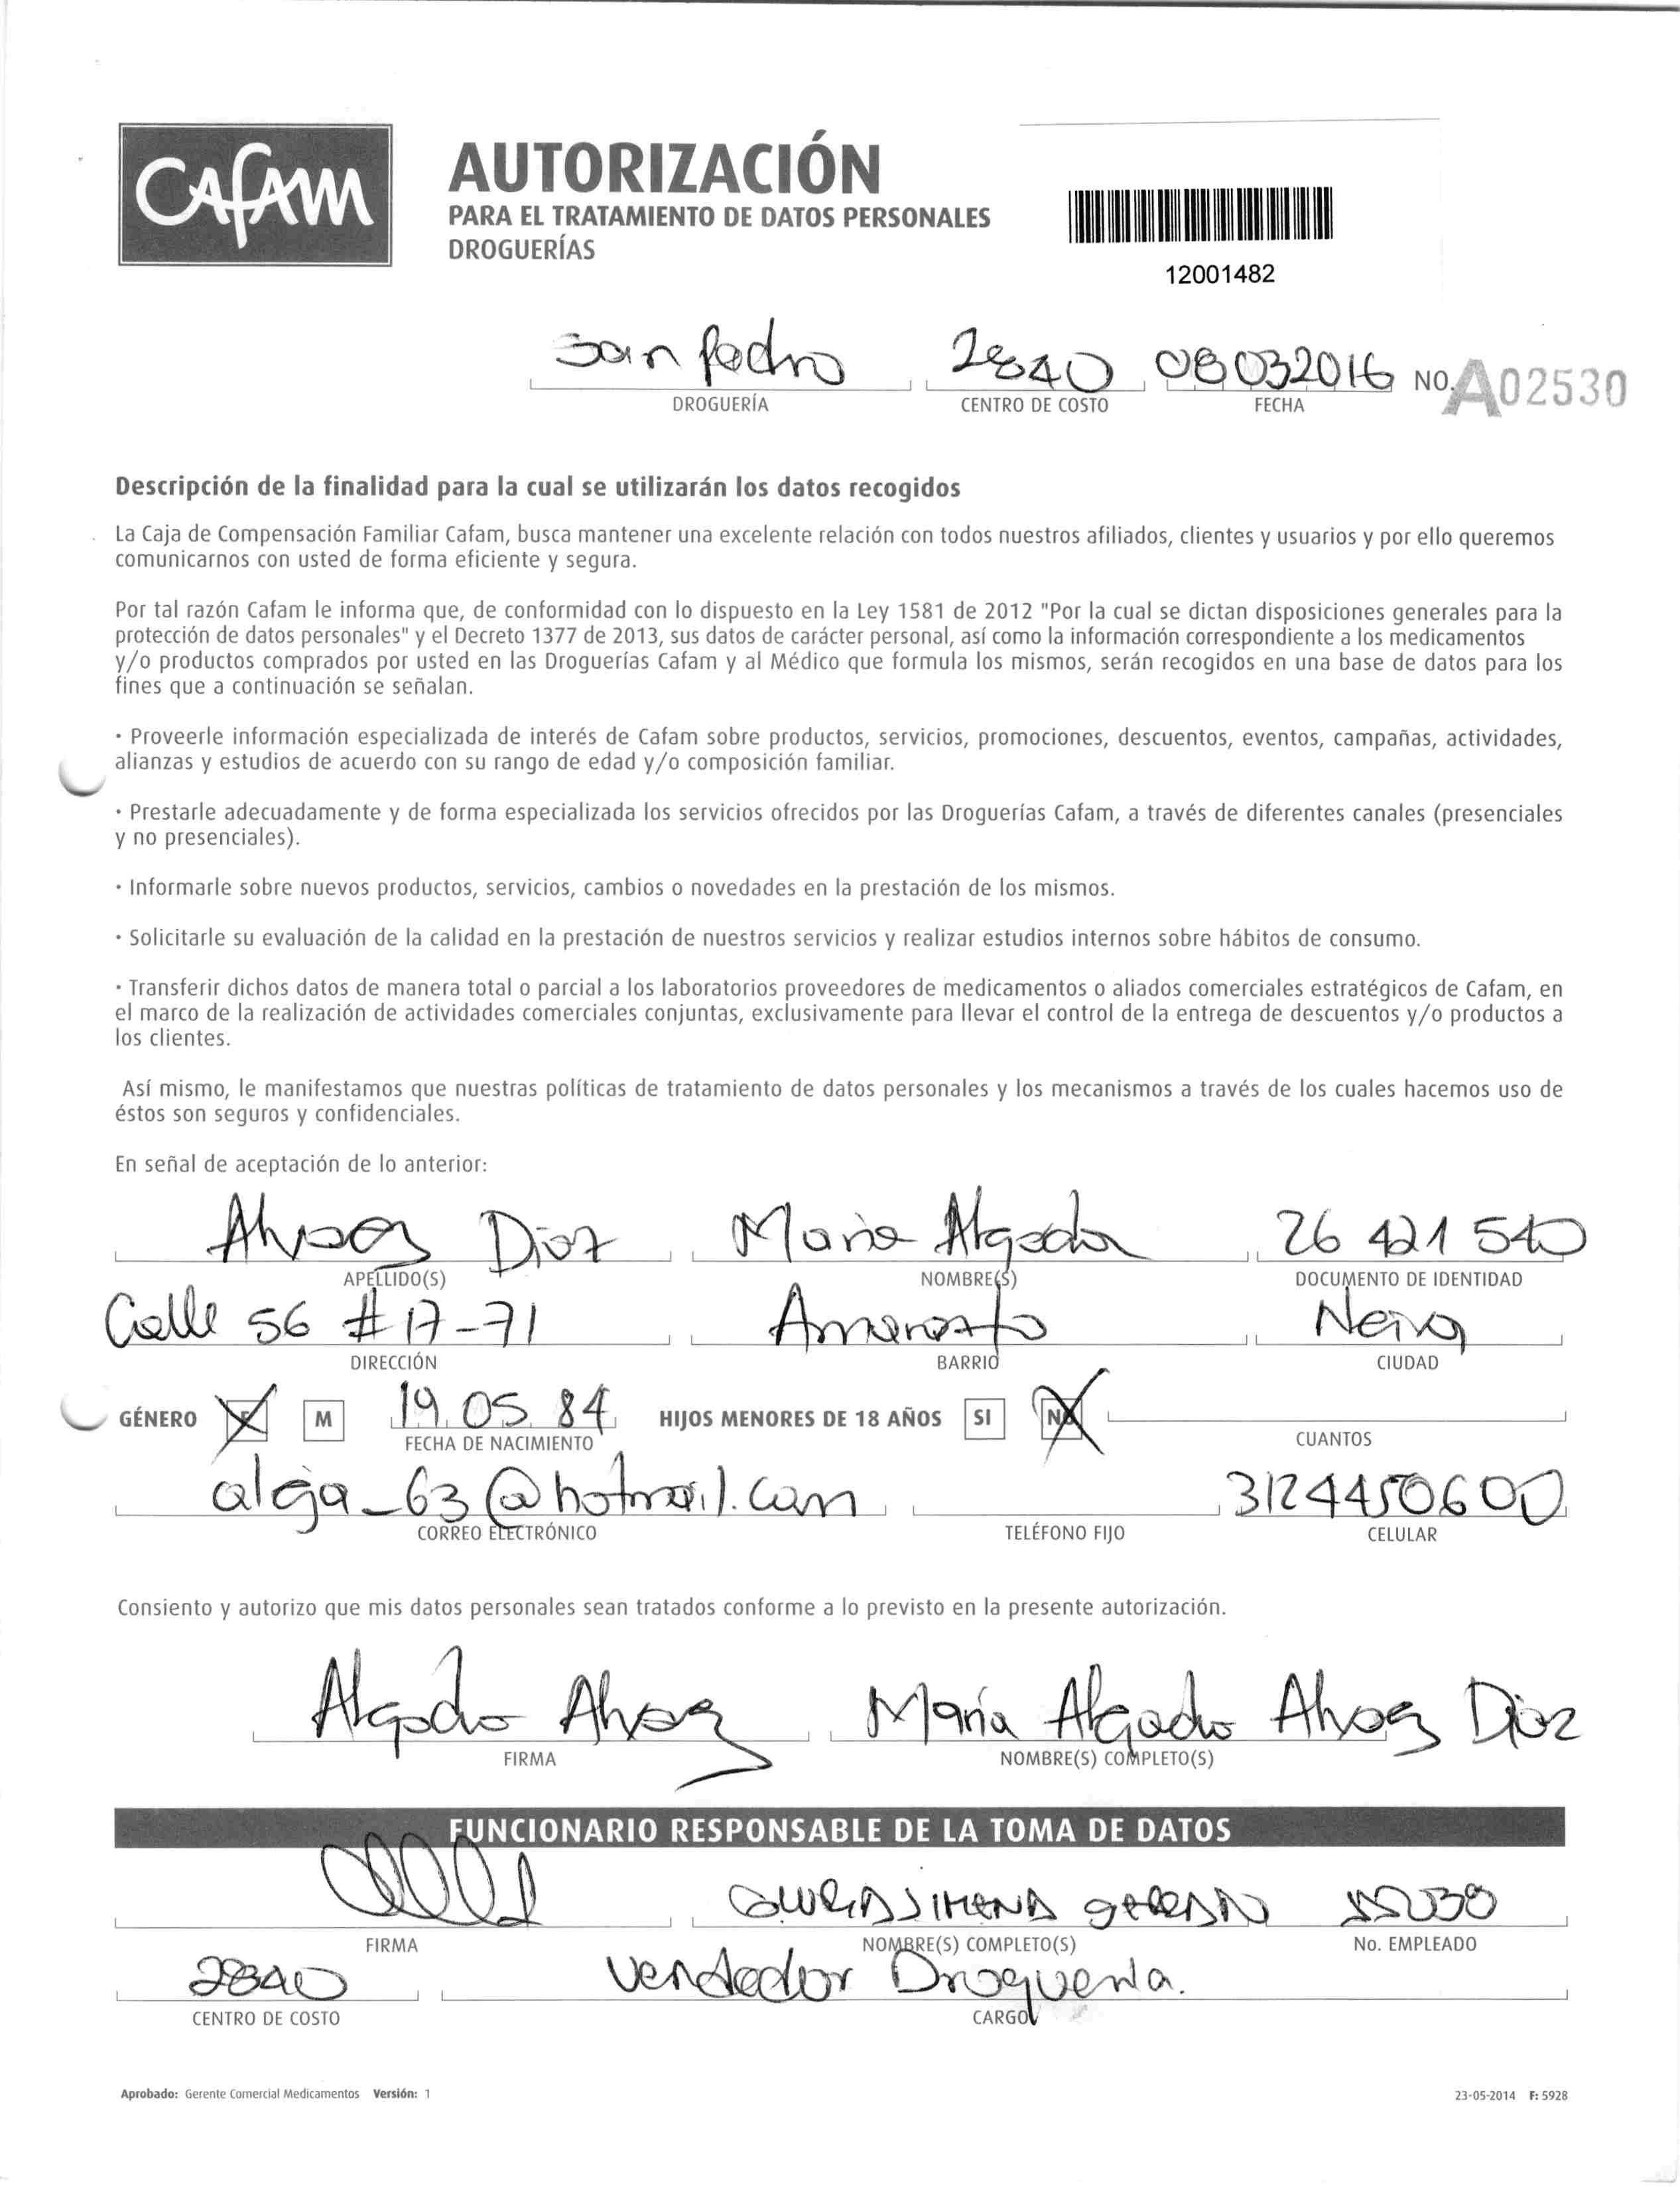 CAFAM
AUTORIZACIÓN
PARA EL TRATAMIENTO DE DATOS PERSONALES
DROGUERÍAS
12001482
San Pedro 2840 08032016 NO. A02530
DROGUERÍA CENTRO DE COSTO FECHA
Descripción de la finalidad para la cual se utilizarán los datos recogidos
La Caja de Compensación Familiar Cafam, busca mantener una excelente relación con todos nuestros afiliados, clientes y usuarios y por ello queremos
comunicarnos con usted de forma eficiente y segura.
Por tal razón Cafam le informa que, de conformidad con lo dispuesto en la Ley 1581 de 2012 "Por la cual se dictan disposiciones generales para la
protección de datos personales" y el Decreto 1377 de 2013, sus datos de carácter personal, así como la información correspondiente a los medicamentos
y/o productos comprados por usted en las Droguerías Cafam y al Médico que formula los mismos, serán recogidos en una base de datos para los
fines que a continuación se señalan.
· Proveerle información especializada de interés de Cafam sobre productos, servicios, promociones, descuentos, eventos, campañas, actividades,
alianzas y estudios de acuerdo con su rango de edad y/o composición familiar.
· Prestarle adecuadamente y de forma especializada los servicios ofrecidos por las Droguerías Cafam, a través de diferentes canales (presenciales
y no presenciales).
· Informarle sobre nuevos productos, servicios, cambios o novedades en la prestación de los mismos.
· Solicitarle su evaluación de la calidad en la prestación de nuestros servicios y realizar estudios internos sobre hábitos de consumo.
· Transferir dichos datos de manera total o parcial a los laboratorios proveedores de medicamentos o aliados comerciales estratégicos de Cafam, en
el marco de la realización de actividades comerciales conjuntas, exclusivamente para llevar el control de la entrega de descuentos y/o productos a
los clientes.
Así mismo, le manifestamos que nuestras políticas de tratamiento de datos personales y los mecanismos a través de los cuales hacemos uso de
éstos son seguros y confidenciales.
En señal de aceptación de lo anterior:
Diaz Maria 26 421 540
APELLIDO(S) NOMBRE(S) DOCUMENTO DE IDENTIDAD
Calle 56 # 17-71 Neiva
DIRECCIÓN BARRIO CIUDAD
GÉNERO F M 19 05 84 HIJOS MENORES DE 18 AÑOS SI NO
FECHA DE NACIMIENTO CUANTOS
aleja_63@hotmail.com 3124450600
CORREO ELECTRÓNICO TELÉFONO FIJO CELULAR
Consiento y autorizo que mis datos personales sean tratados conforme a lo previsto en la presente autorización.
María Diaz
FIRMA NOMBRE(S) COMPLETO(S)
FUNCIONARIO RESPONSABLE DE LA TOMA DE DATOS
FIRMA NOMBRE(S) COMPLETO(S) No. EMPLEADO
2840 Vendedor Drogueria.
CENTRO DE COSTO CARGO
Aprobado: Gerente Comercial Medicamentos Versión: 1 23-05-2014 F: 5928